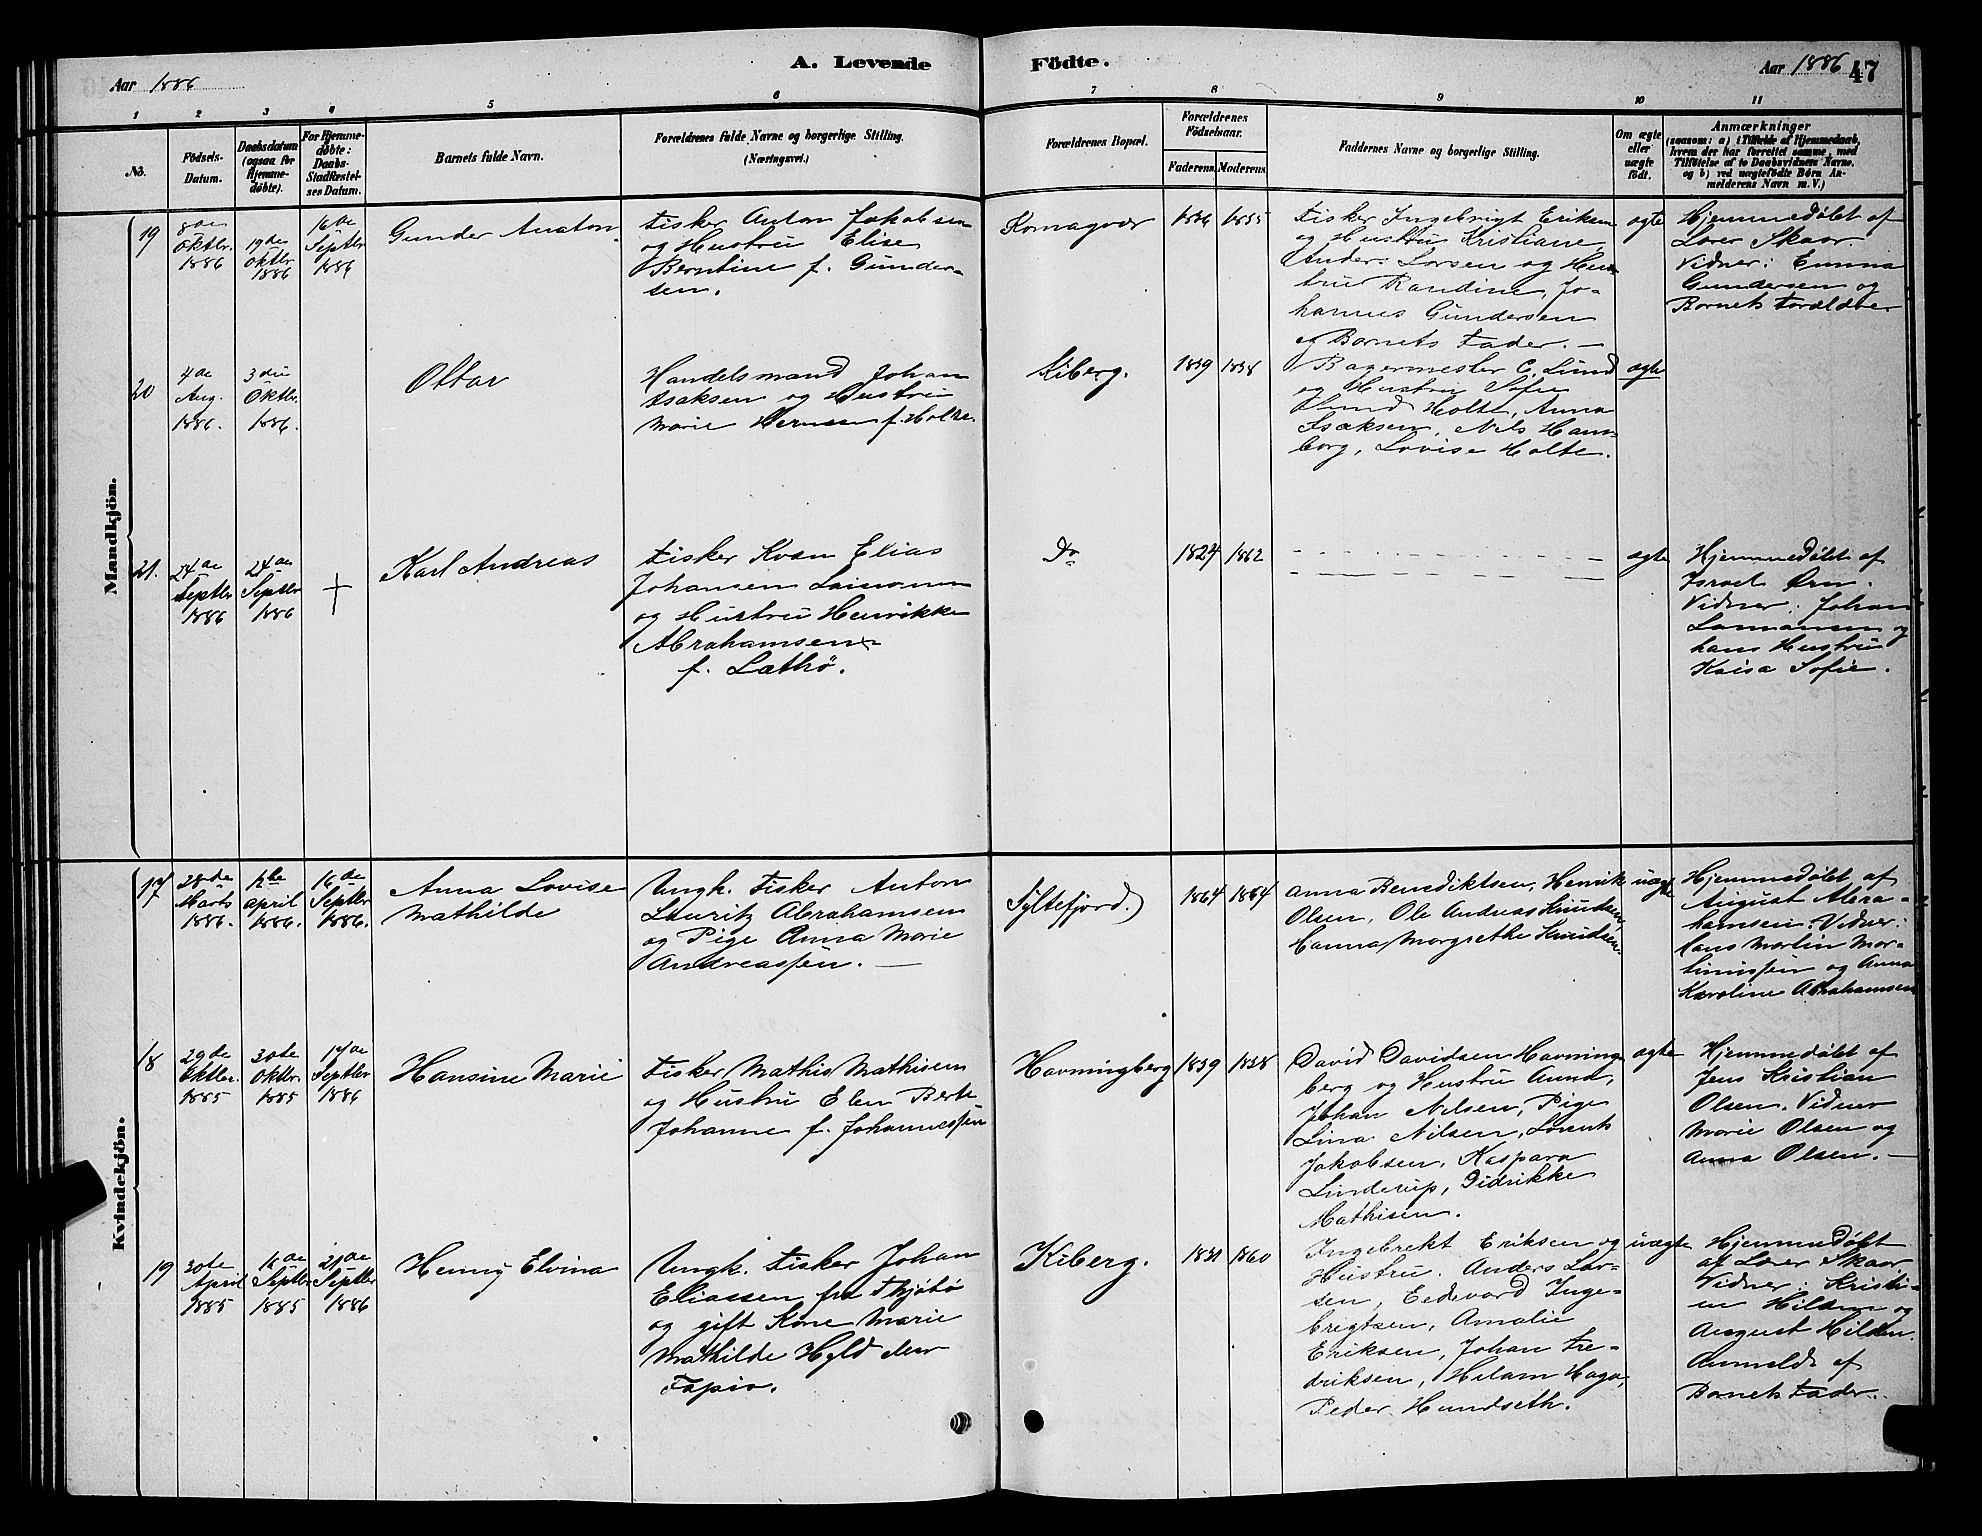 Aar 1886
A. Levende
Födte.
Aar 1886
47
1 2 3 4 5 6 7 8 9 10 11
No.
Födsels-
Datum.
Daabsdatum
(ogsaa for
Hjemme-
døbte).
For Hjemme-
döbte:
Daabs-
Stadfæstel-
ses Datum.
Barnets fulde Navn.
Forældrenes fulde Navne og borgerlige Stilling.
(Næringsvei.)
Forældrenes Bopæl.
Forældrenes
Födselsaar.
Faderens.
Moderens.
Faddernes Navne og borgerlige Stilling.
Om ægte
eller
uægte
födt.
Anmærkninger
(saasom: a) i Tilfælde af Hjemmedaab,
hvem der har forrettet samme, med
Tilföielse af to Daabsvidners Navne,
og b) ved uægtefödte Börn An-
melderens Navn m. V.)
Mandkjön.
19
8de
Oktbr.
1886
19de
Oktbr
1886
16de
Septbr
1886
Gunder Anton
Fisker Anton Jakobsen
og Hustru Elise
Berntine f. Gunder-
sen.
Komagvær
1836
1835
Fisker Ingebrigt Eriksen
og Hustru Kristiane,
Anders Larsen og Hus-
tru Randine, Jo-
hannes Gundersen
og Barnets Fader. —
ægte
Hjemmedøbt af
Lærer Skaar.
Vidner: Emma
Gundersen og
Barnets Forældre
20
4de
Aug.
1886.
3die
Oktbr.
1886.
Ottar
Handelsmand Johan
Isaksen og Hustru
Marie f. Holte.
Kiberg.
1839
1838
Bagermester C. Lund
og Hustru Sofie
Lund Holte, Anna
Isaksen, Nils Ham-
borg, Lovise Holte.
ægte
21.
24de
Septbr
1886
24de
Septbr
1886
+
Karl Andreas
Fisker Kvæn Elias
Johansen
og Hustru Henrikke
Abrahamsen
f. Lathö.
Do
1824
1862
ægte
Hjemmedøbt af
Israel Ørn.
Vidner: Johan
og
hans Hustru
Kaisa Sofie.
Kvindekjön.
17
28de
Marts
1886.
12te
april
1886.
16de
Septbr
1886.
Anna Lovise
Mathilde
Ungk. Fisker Anton
Lauritz Abrahamsen
og Pige Anna Marie
Andreassen. —
Syltefjord.
1864
1864
Anna Benediktsen, Henrik
Olsen, Ole Andreas Knudsen,
Hanna Margrethe Knudsen
uægte
Hjemmedøbt af
August Abra-
hamsen. Vidner:
Hans Martin Mar-
tinussen og Anna
Karoline Abrahamsen
18
29de
Oktbr.
1885
30te
Oktbr.
1885
17de
Septbr
1886
Hansine Marie
Fisker Mathis Mathisen
og Hustru Elen Berte
Johanne f. Johannessen
Havningberg
1839
1838
David Davidsen Havning-
berg og Hustru Anna,
Johan Nilsen, Pige
Lina Nilsen, Lorents
Jakobsen, Kaspara
Linderup, Didrikke
Mathisen.
ægte
Hjemmedøbt af
Jens Kristian
Olsen. Vidner
Marie Olsen og
Anna Olsen. —
19
30te
April
1885
Septbr
1885
21de
Septbr
1886
Henny Elvina
Ungk. Fisker Johan
Eliassen fra Thjøtø
og gift Kone Marie
Mathilde Hyld
Tapio.
Kiberg.
1831
1860
Ingebrekt Eriksen og
Hustru. Anders Lar-
sen, Eedevard Inge-
brigtsen, Amalie
Eriksen, Johan Fre-
driksen, Hilam Haga,
Peder Hundseth.
uægte
Hjemmedøbt
af Lærer Skaar
Vidner: Kristi-
en Hilden og
August Hilden.
Anmeldt af
Barnets Fader.